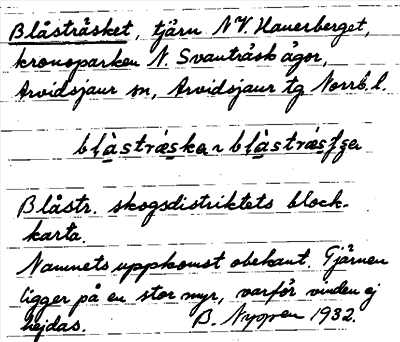 Blåsträsket, tjärn NV. Hauerberget,
kronoparken N. Svanträsk ägor,
Arvidsjaur sn, Arvidsjaur tg Norrb. l.
blåsträska ~ blåsträsʃʃa
Blåstr. skogsdistriktets block-
karta.
Namnets uppkomst obekant. Tjärnen
ligger på en stor myr, varför vinden ej
hejdas. B. Nyren 1932.